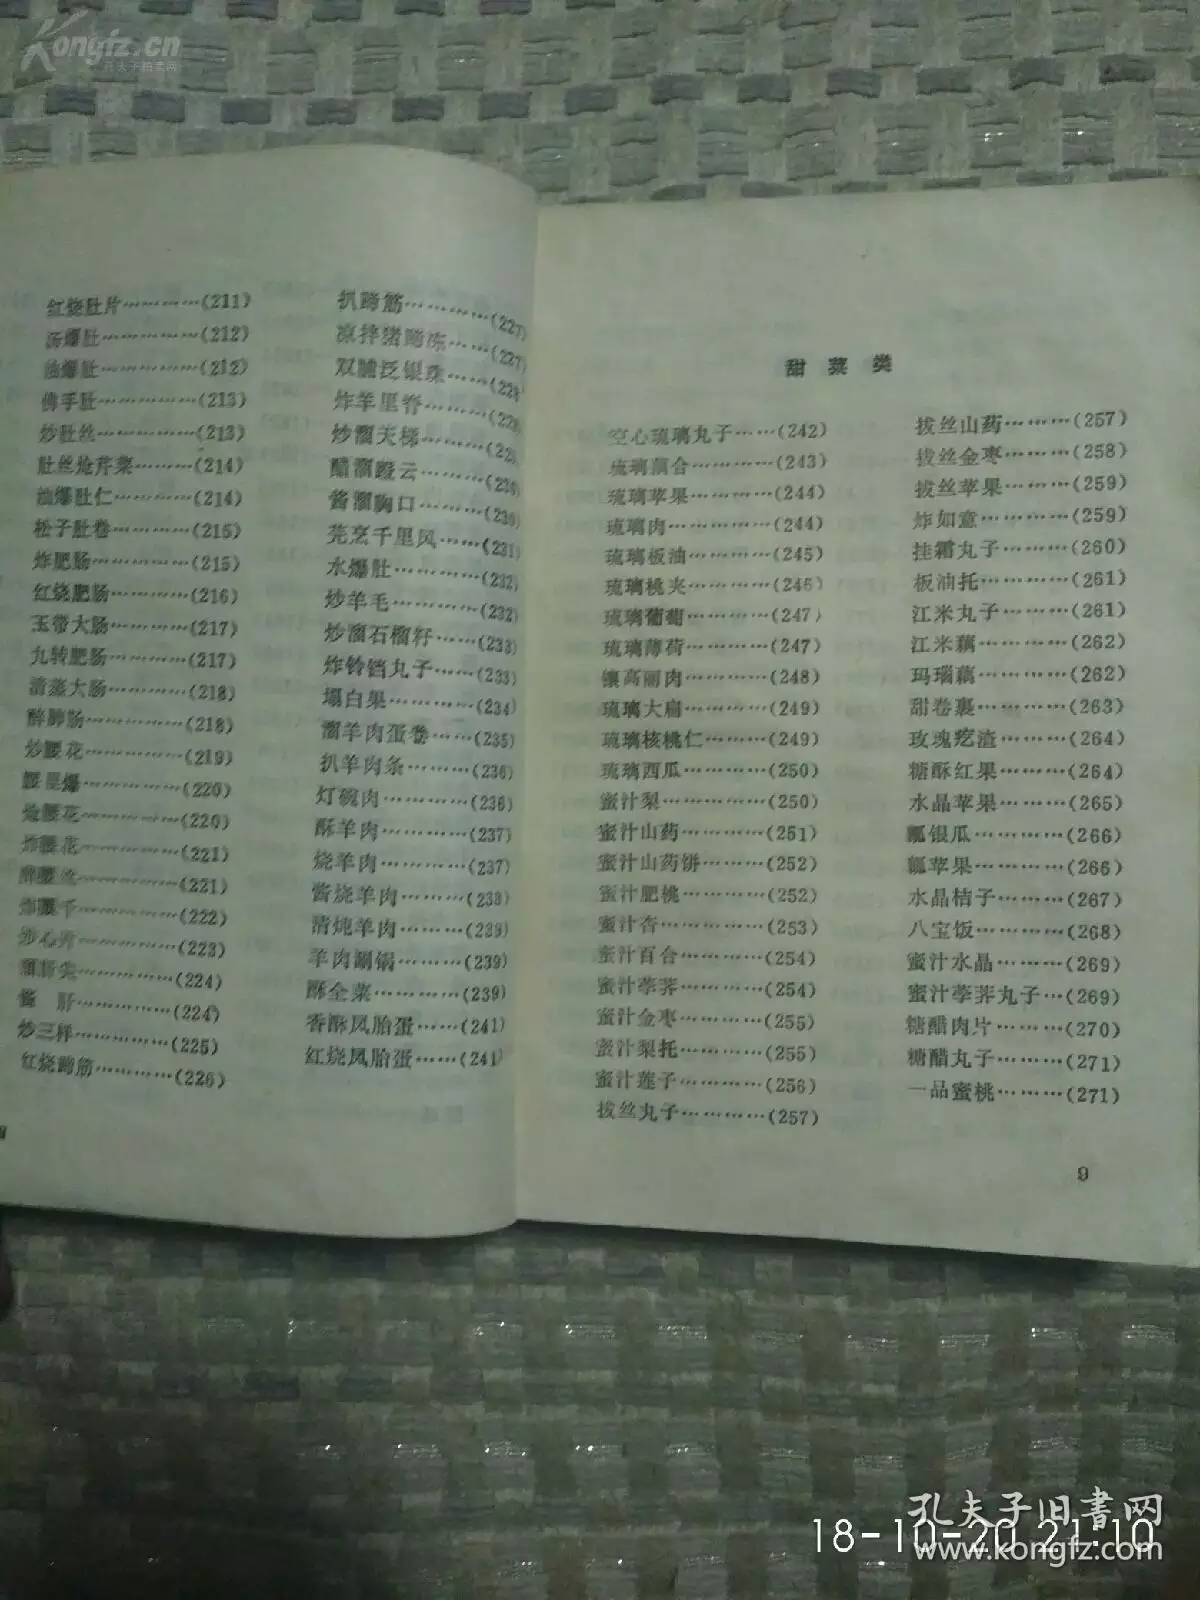 Kongfz.cn
孔夫子拍卖网
红烧肚片…………(211)
汤爆肚…………(212)
油爆肚…………(212)
佛手肚…………(213)
炒肚丝…………(213)
肚丝炝芹菜………(214)
油爆肚仁…………(214)
松子肚卷…………(215)
炸肥肠…………(215)
红烧肥肠…………(216)
玉带大肠…………(217)
九转肥肠…………(217)
清蒸大肠…………(218)
醉肺肠…………(218)
炒腰花…………(219)
…………(220)
炝腰花…………(220)
炸腰花…………(221)
…………(221)
…………(222)
…………(223)
…………(224)
酱 肝…………(224)
炒三样…………(225)
红烧蹄筋…………(226)
扒蹄筋…………(227)
凉拌猪蹄冻……(227)
双腰泛银珠……(228)
炸羊里脊…………
炒溜天梯…………
醋溜蹬云…………
酱溜胸口…………(230)
芫烹千里风……(231)
水爆肚…………(232)
炒羊毛…………(232)
炒溜石榴籽……(233)
炸铃铛丸子……(233)
塌白果…………(234)
溜羊肉蛋卷……(235)
扒羊肉条………(236)
灯碗肉…………(236)
酥羊肉…………(237)
烧羊肉…………(237)
酱烧羊肉………(238)
清炖羊肉………(239)
羊肉涮锅………(239)
酥全菜…………(239)
香酥凤胎蛋……(241)
红烧凤胎蛋……(241)
甜菜类
空心琉璃丸子……(242)
琉璃藕合…………(243)
琉璃苹果…………(244)
琉璃肉…………(244)
琉璃板油…………(245)
琉璃桃夹…………(246)
琉璃葡萄…………(247)
琉璃薄荷…………(247)
镶高丽肉…………(248)
琉璃大扁…………(249)
琉璃核桃仁………(249)
琉璃西瓜…………(250)
蜜汁梨…………(250)
蜜汁山药…………(251)
蜜汁山药饼………(252)
蜜汁肥桃…………(252)
蜜汁杏…………(253)
蜜汁百合…………(254)
蜜汁荸荠…………(254)
蜜汁金枣…………(255)
蜜汁梨托…………(255)
蜜汁莲子…………(256)
拔丝丸子…………(257)
拔丝山药………(257)
拔丝金枣………(258)
拔丝苹果………(259)
炸如意…………(259)
挂霜丸子………(260)
板油托…………(261)
江米丸子………(261)
江米藕…………(262)
玛瑙藕…………(262)
甜卷裹…………(263)
玫瑰疙渣………(264)
糖酥红果………(264)
水晶苹果………(265)
瓤银瓜…………(266)
瓤苹果…………(266)
水晶桔子………(267)
八宝饭…………(268)
蜜汁水晶………(269)
蜜汁荸荠丸子…(269)
糖醋肉片………(270)
糖醋丸子………(271)
一品蜜桃………(271)
9
孔夫子旧书网
18-10-20 21:10
www.kongfz.com